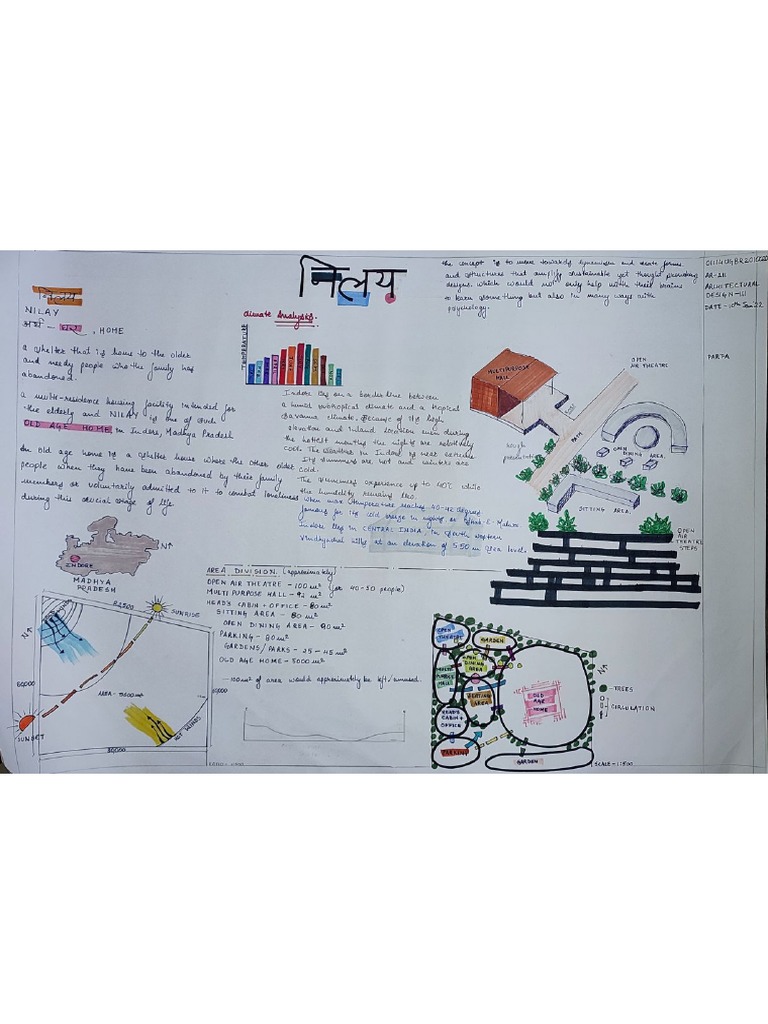 निलय
निलय
NILAY
अर्थ - घर, HOME
a shelter that is home to the older
and needy people who the family has
abandoned.
a multi-residence housing facility intended for
the elderly and NILAY is one of such
OLD AGE HOME in Indore, Madhya Pradesh
An old age home is a shelter house where the other older
people when they have been abandoned by their family
members or voluntarily admitted to it to combat loneliness
during this crucial stage of life.
INDORE
N
MADHYA
PRADESH
Climate Analysis.
TEMPERATURE
Indore lies on a border line between
a humid subtropical climate and a tropical
savanna climate. Because of its high
elevation and inland location even during
the hottest months the nights are relatively
cool. The weather in Indore is near extreme
Its summers are hot and winters are
cold.
The summers experience up to 40°C while
the humidity remains less.
when max temperature reaches 45-42 degree
famous for its cold breeze in nights as Shab-E-Malwa
Indore lies in CENTRAL INDIA, in South western
Vindhyachal hills at an elevation of 550 m sea level.
the concept is to move towards dynamism and create forms
and structures that amplify sustainable yet thought provoking
designs. which would not only help with their brains
to learn something but also in many ways with
psychology.
AR-211
ARCHITECTURAL
DESIGN-III
DATE - 10th Jan'22
PART-A
MULTIPURPOSE
HALL
OPEN
AIR THEATRE
PATH
rough
presentation
OPEN
DINING AREA
SITTING AREA
OPEN
AIR
THEATRE
STEPS
AREA DIVISION (approximately)
OPEN AIR THEATRE - 100m²
MULTI PURPOSE HALL - 92 m² (for 40-50 people)
HEAD'S CABIN + OFFICE - 80m²
SITTING AREA - 80 m²
OPEN DINING AREA - 90m²
PARKING - 80m²
GARDENS/PARKS - 25-45m²
OLD AGE HOME - 5000 m²
100m² of area would approximately be left/unused.
N
SUNRISE
60000
AREA - 5500m²
60000
SUNSET
HOT WINDS
80000
OPEN
THEATRE
GARDEN
OPEN
DINING
AREA
MULTI
PURPOSE
HALL
SITTING
AREA
HEAD'S
CABIN +
OFFICE
OLD
AGE
HOME
PARKING
GARDEN
N
- TREES
CIRCULATION
SCALE - 1:500